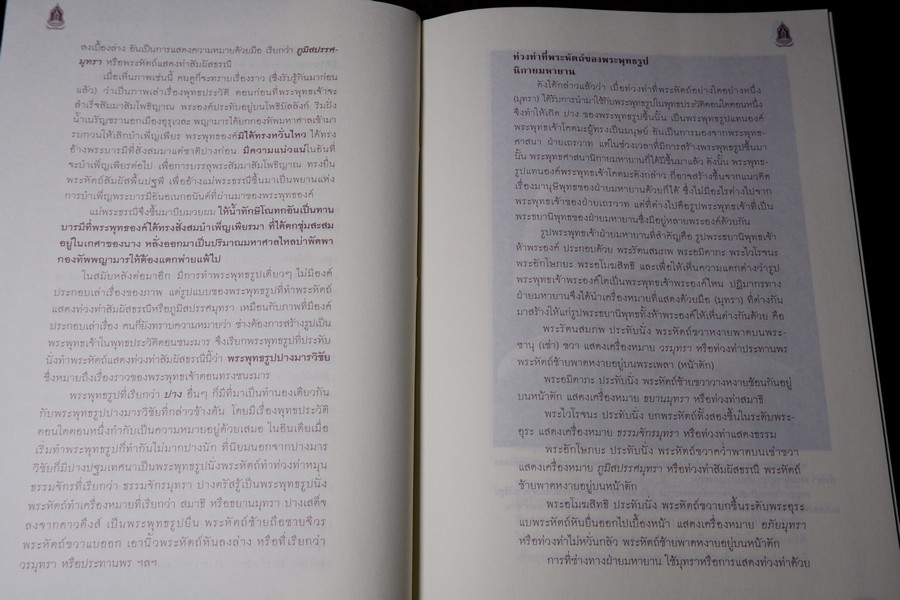 ลงเบื้องล่าง อันเป็นการแสดงความหมายด้วยมือ เรียกว่า ภูมิสปรรศ-
มุทรา หรือพระหัตถ์แสดงท่าสัมผัสธรณี
เมื่อเห็นภาพเช่นนี้ คนดูก็จะทราบเรื่องราว (ซึ่งรับรู้กันมาก่อน
แล้ว) ว่าเป็นภาพเล่าเรื่องพุทธประวัติ ตอนก่อนที่พระพุทธเจ้าจะ
สำเร็จสัมมาสัมโพธิญาณ พระองค์ประทับอยู่บนโพธิบัลลังก์ ริมฝั่ง
น้ำเนรัญชรานอกเมืองอุรุเวละ พญามารได้ยกกองทัพมหาศาลเข้ามา
รบกวนให้เลิกบำเพ็ญเพียร พระพุทธองค์มิได้ทรงหวั่นไหว ได้ทรง
อ้างพระบารมีที่สั่งสมมาแต่ชาติปางก่อน มีความแน่วแน่ในอันที่
จะบำเพ็ญเพียรต่อไป เพื่อการบรรลุพระสัมมาสัมโพธิญาณ ทรงยื่น
พระหัตถ์สัมผัสพื้นปฐพี เพื่ออ้างแม่พระธรณีขึ้นมาเป็นพยานแห่ง
การบำเพ็ญพระบารมีอันอเนกอนันต์ที่ผ่านมาของพระพุทธองค์
แม่พระธรณีจึงขึ้นมาบีบมวยผม ให้น้ำทักษิโณทกอันเป็นทาน
บารมีที่พระพุทธองค์ได้ทรงสั่งสมบำเพ็ญเพียรมา ที่ได้ตกชุ่มสะสม
อยู่ในเกศาของนาง หลั่งออกมาเป็นปริมาณมหาศาลไหลบ่าพัดพา
กองทัพพญามารให้ต้องแตกพ่ายแพ้ไป
ในสมัยหลังต่อมาอีก มีการทำพระพุทธรูปเดี่ยวๆ ไม่มีองค์
ประกอบเล่าเรื่องของภาพ แต่รูปแบบของพระพุทธรูปที่ทำพระหัตถ์
แสดงท่วงท่าสัมผัสธรณีหรือภูมิสปรรศมุทรา เหมือนกับภาพที่มีองค์
ประกอบเล่าเรื่อง คนก็ยังทราบความหมายว่า ช่างต้องการสร้างรูปเป็น
พระพุทธเจ้าในพุทธประวัติตอนชนะมาร จึงเรียกพระพุทธรูปที่ประทับ
นั่งทำพระหัตถ์แสดงท่วงท่าสัมผัสธรณีนี้ว่า พระพุทธรูปปางมารวิชัย
ซึ่งหมายถึงเรื่องราวของพระพุทธเจ้าตอนทรงชนะมาร
พระพุทธรูปที่เรียกว่า ปาง อื่นๆ ก็มีที่มาเป็นทำนองเดียวกัน
กับพระพุทธรูปปางมารวิชัยที่กล่าวข้างต้น โดยมีเรื่องพุทธประวัติ
ตอนใดตอนหนึ่งกำกับเป็นความหมายอยู่ด้วยเสมอ ในอินเดียเมื่อ
เริ่มทำพระพุทธรูปก็ทำกันไม่มากปางนัก ที่นิยมนอกจากปางมาร
วิชัยก็มีปางปฐมเทศนาเป็นพระพุทธรูปนั่งพระหัตถ์ทำท่วงท่าหมุน
ธรรมจักรที่เรียกว่า ธรรมจักรมุทรา ปางตรัสรู้เป็นพระพุทธรูปนั่ง
พระหัตถ์ทำเครื่องหมายที่เรียกว่า สมาธิ หรือธยานมุทรา ปางเสด็จ
ลงจากดาวดึงส์ เป็นพระพุทธรูปยืน พระหัตถ์ซ้ายถือชายจีวร
พระหัตถ์ขวาแบออก เอานิ้วพระหัตถ์หันลงล่าง หรือที่เรียกว่า
วรมุทรา หรือประทานพร ฯลฯ
ท่วงท่าที่พระหัตถ์ของพระพุทธรูป
นิกายมหายาน
ดังได้กล่าวแล้วว่า เมื่อท่วงท่าที่พระหัตถ์อย่างใดอย่างหนึ่ง
(มุทรา) ได้รับการนำมาใช้กับพระพุทธรูปในพุทธประวัติตอนใดตอนหนึ่ง
จึงทำให้เกิด ปาง ของพระพุทธรูปขึ้นนั้น เป็นพระพุทธรูปแทนองค์
พระพุทธเจ้าโคตมะผู้ทรงเป็นมนุษย์ อันเป็นการมองจากพระพุทธ-
ศาสนา ฝ่ายเถรวาท แต่ในช่วงเวลาที่มีการสร้างพระพุทธรูปขึ้นมา
นั้น พระพุทธศาสนานิกายมหายานก็ได้มีขึ้นมาแล้ว ดังนั้น พระพุทธ-
รูปแทนองค์พระพุทธเจ้าโคตมะดังกล่าว ก็อาจสร้างขึ้นจากแนวคิด
เรื่องมานุษิพุทธของฝ่ายมหายานด้วยก็ได้ ซึ่งไม่มีอะไรต่างไปจาก
พระพุทธเจ้าของฝ่ายเถรวาท แต่ที่ต่างไปคือรูปพระพุทธเจ้าที่เป็น
พระธยานิพุทธของฝ่ายมหายานซึ่งมีอยู่หลายพระองค์ด้วยกัน
รูปพระพุทธเจ้าฝ่ายมหายานที่สำคัญคือ รูปพระธยานิพุทธเจ้า
ห้าพระองค์ ประกอบด้วย พระรัตนสมภพ พระอมิตาภะ พระไวโรจนะ
พระอักโษภยะ พระอโมฆสิทธิ และเพื่อให้เห็นความแตกต่างว่ารูป
พระพุทธเจ้าพระองค์ใดเป็นพระพุทธเจ้าพระองค์ไหน ปฏิมากรทาง
ฝ่ายมหายานจึงได้นำเครื่องหมายที่แสดงด้วยมือ (มุทรา) ที่ต่างกัน
มาสร้างให้แก่รูปพระธยานิพุทธทั้งห้าพระองค์ให้เห็นต่างกันด้วย คือ
พระรัตนสมภพ ประทับนั่ง พระหัตถ์ขวาหงายพาดบนพระ-
ชานุ (เข่า) ขวา แสดงเครื่องหมาย วรมุทรา หรือท่วงท่าประทานพร
พระหัตถ์ซ้ายพาดหงายอยู่บนพระเพลา (หน้าตัก)
พระอมิตาภะ ประทับนั่ง พระหัตถ์ขวาวางหงายซ้อนกันอยู่
บนหน้าตัก แสดงเครื่องหมาย ธยานมุทรา หรือท่วงท่าสมาธิ
พระไวโรจนะ ประทับนั่ง ยกพระหัตถ์ทั้งสองขึ้นในระดับพระ-
อุระ แสดงเครื่องหมาย ธรรมจักรมุทรา หรือท่วงท่าแสดงธรรม
พระอักโษภยะ ประทับนั่ง พระหัตถ์ขวาคว่ำพาดบนเข่าขวา
แสดงเครื่องหมาย ภูมิสปรรศมุทรา หรือท่วงท่าสัมผัสธรณี พระหัตถ์
ซ้ายพาดหงายอยู่บนหน้าตัก
พระอโมฆสิทธิ ประทับนั่ง พระหัตถ์ขวายกขึ้นระดับพระอุระ
แบพระหัตถ์หันยื่นออกไปเบื้องหน้า แสดงเครื่องหมาย อภัยมุทรา
หรือท่วงท่าไม่หวั่นกลัว พระหัตถ์ซ้ายพาดหงายอยู่บนหน้าตัก
การที่ช่างทางฝ่ายมหายาน ใช้มุทราหรือการแสดงท่วงท่าด้วย